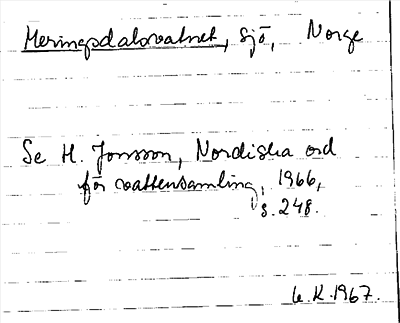 Meringsdalsvatnet, sjö, Norge
Se H. Jonsson, Nordiska ord
för vattensamling, 1966,
s. 248.
L.K. 1967.